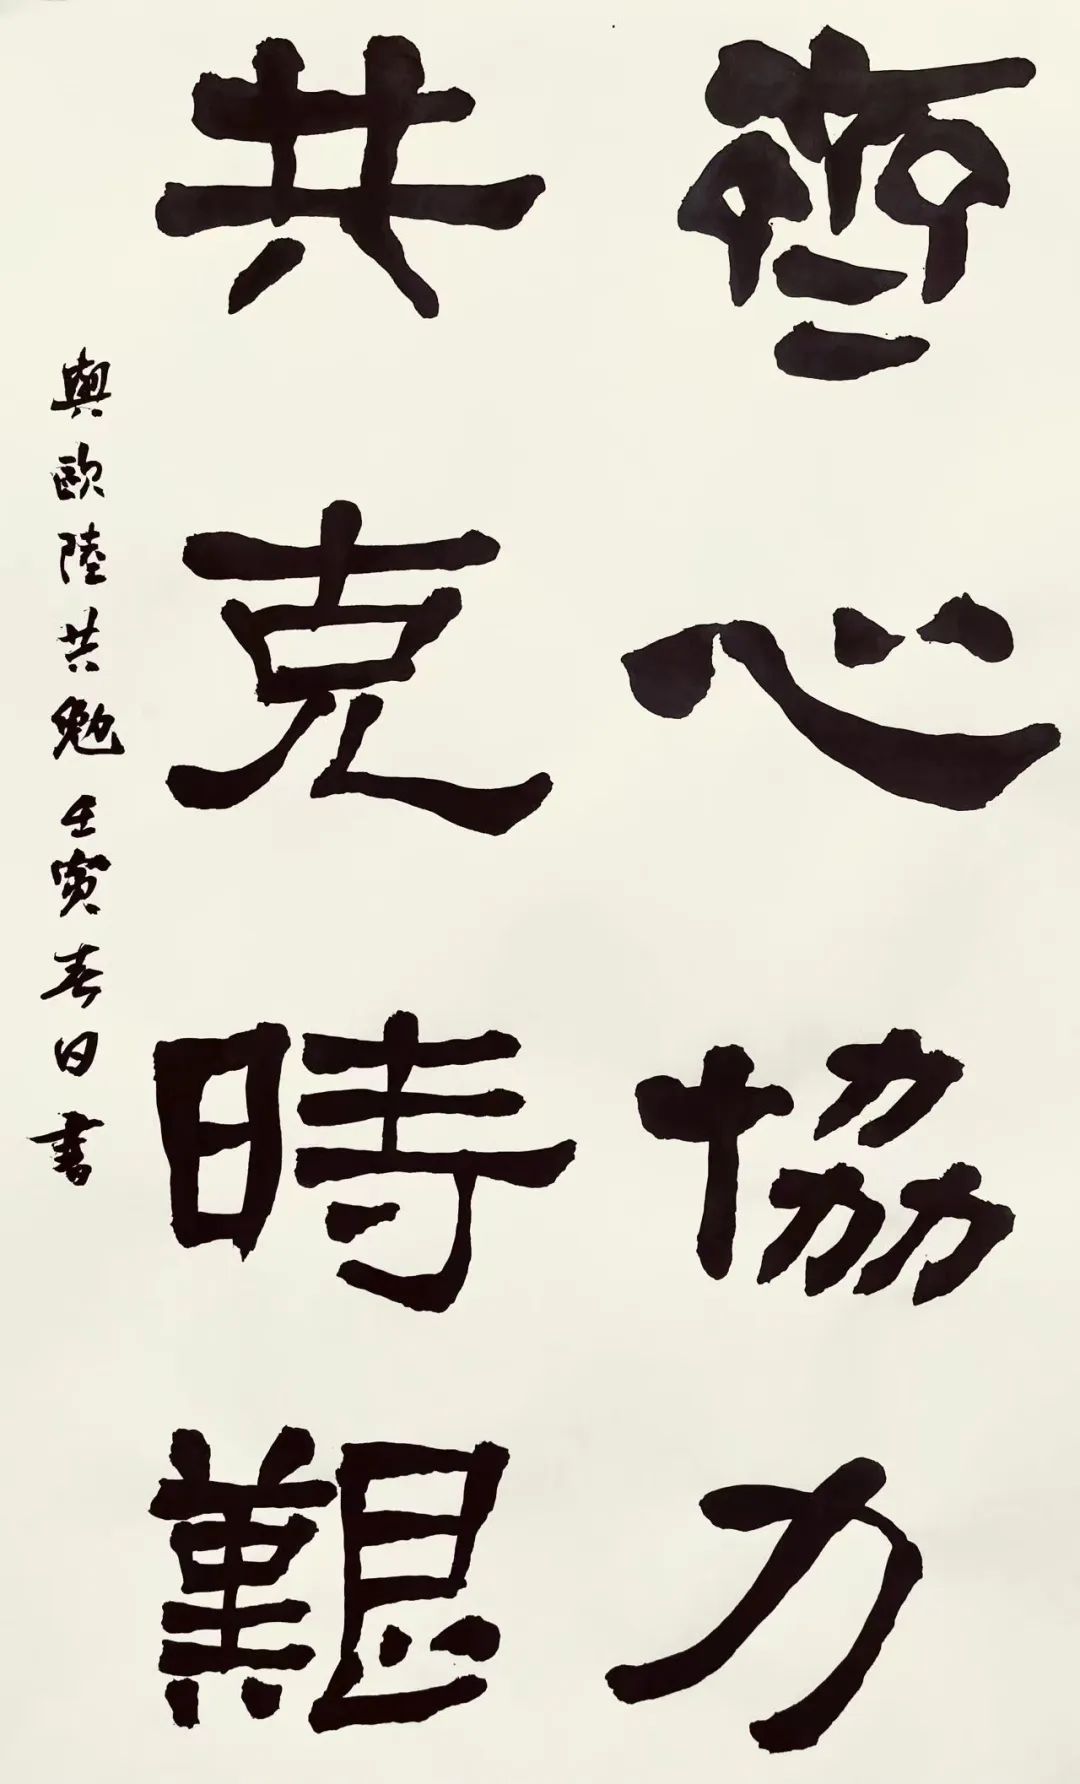 齊心協力
共克時艱
與歐陸共勉壬寅春日書